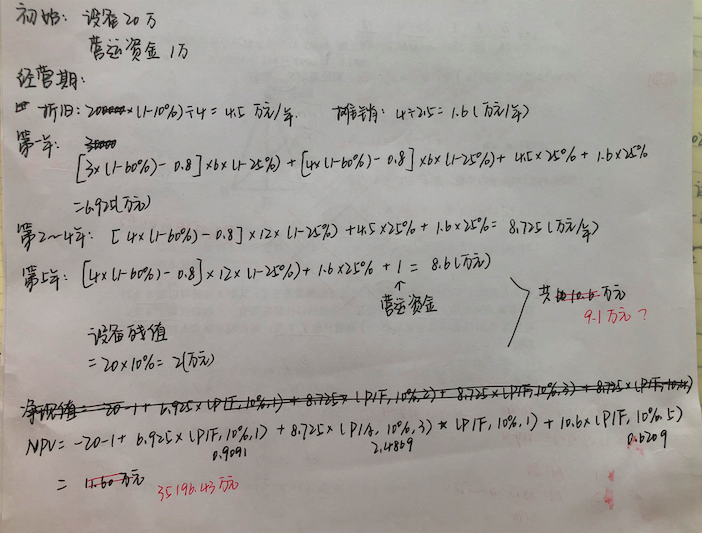 初始: 设备20万
营运资金 1万
经营期:
折旧: 20×(1-10%)÷4 = 4.5 万元/年. 摊销: 4÷2.5 = 1.6 (万元/年)
第一年:
[3×(1-60%)-0.8]×6×(1-25%) + [4×(1-60%)-0.8]×6×(1-25%) + 4.5×25% + 1.6×25%
=6.925(万元)
第2~4年: [4×(1-60%)-0.8]×12×(1-25%) +4.5×25% + 1.6×25% = 8.725 (万元/年)
第5年: [4×(1-60%)-0.8]×12×(1-25%) + 1.6×25% + 1 = 8.6(万元)
↑
营运资金
共 10.6 万元
9.1万元?
设备残值
=20×10% = 2(万元)
净现值= -20-1+ 6.925×(P/F,10%,1)+8.725×(P/F,10%,2)+8.725×(P/F,10%,3)+8.725×(P/F,10%,4)
NPV= -20-1+ 6.925×(P/F,10%,1) + 8.725×(P/A,10%,3)×(P/F,10%,1) + 10.6×(P/F,10%,5)
0.9091 2.4869 0.6209
= 11.60 万元
35196.43万元